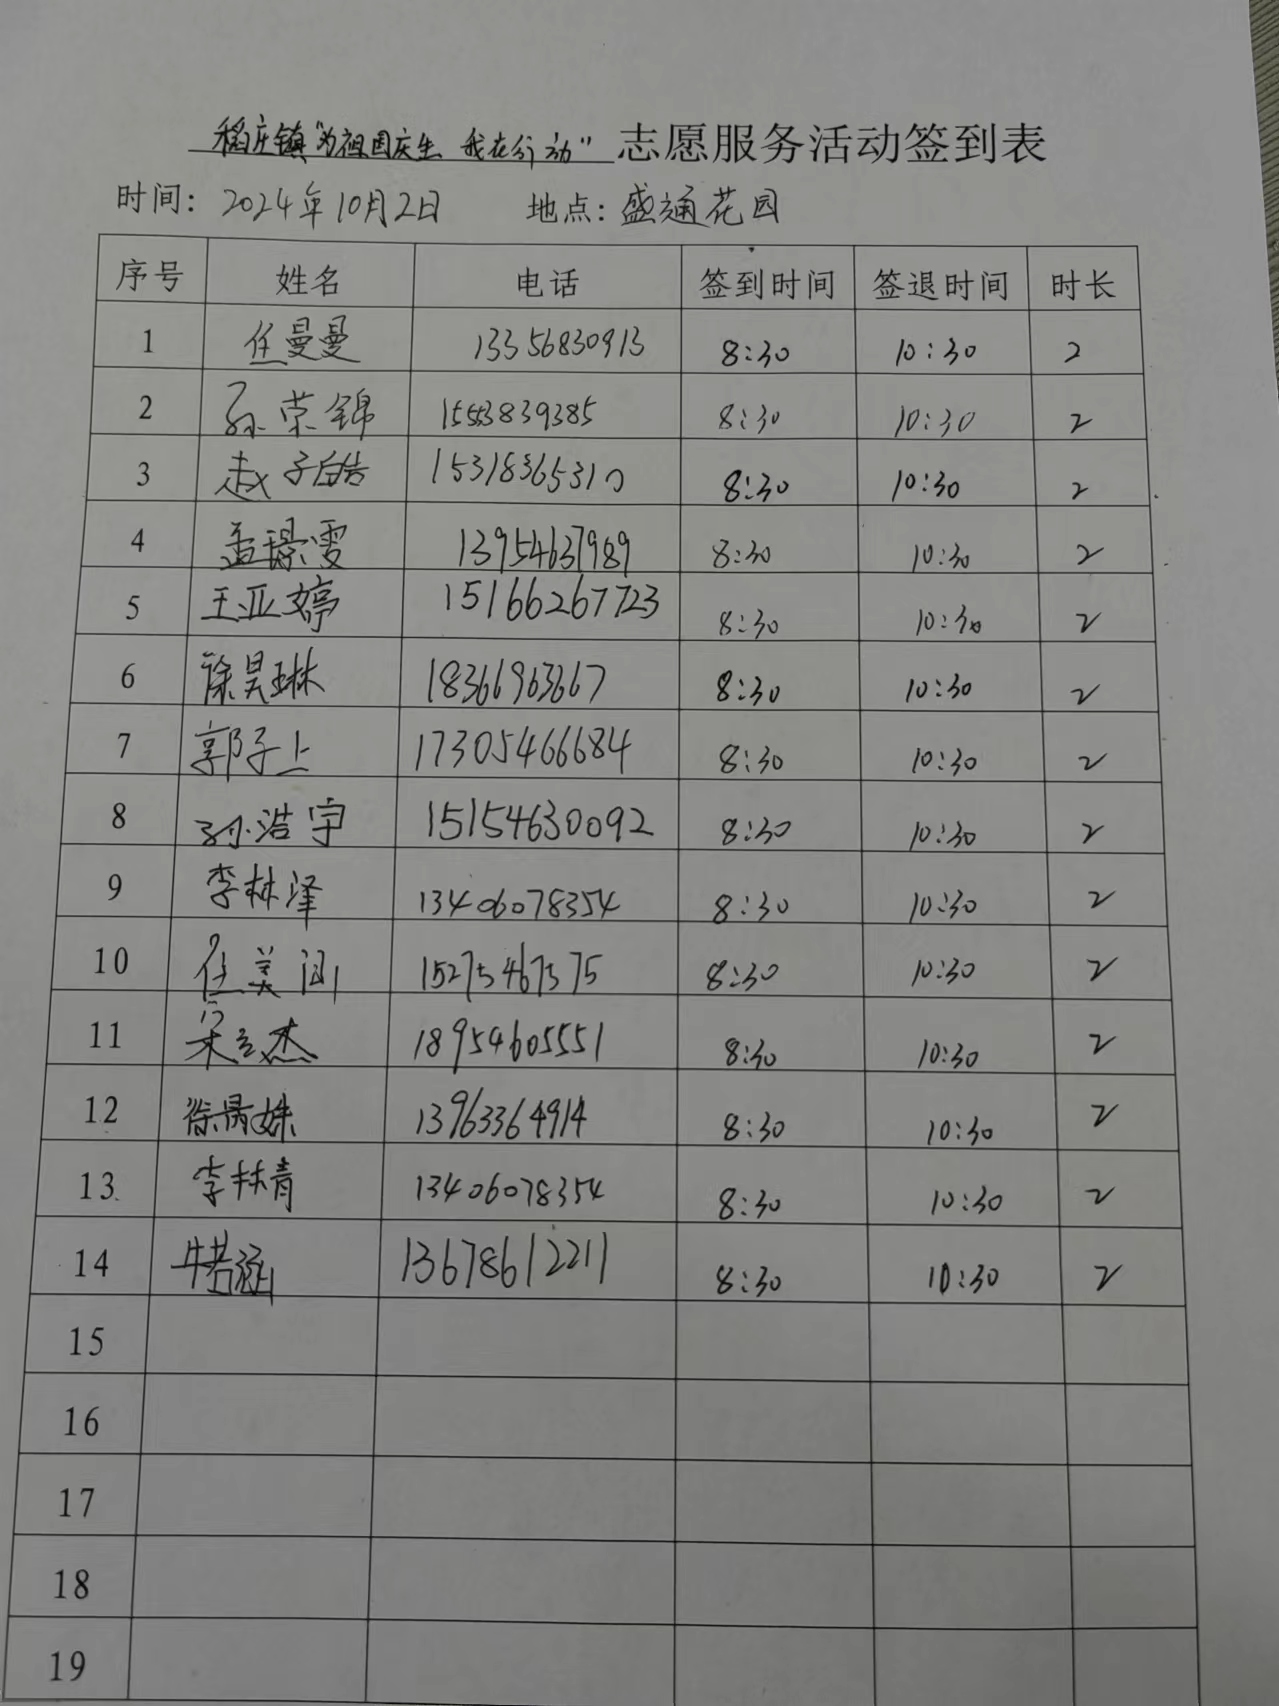 稻庄镇"为祖国庆生 我在行动" 志愿服务活动签到表
时间: 2024年10月2日 地点: 盛通花园
序号 姓名 电话 签到时间 签退时间 时长
1 任曼曼 13356830913 8:30 10:30 2
2 孙荣锦 15553839385 8:30 10:30 2
3 赵子皓 15318365310 8:30 10:30 2
4 孟璟雯 13954637989 8:30 10:30 2
5 王亚婷 15166267723 8:30 10:30 2
6 徐昊琳 18366963667 8:30 10:30 2
7 郭子上 17305466684 8:30 10:30 2
8 孙浩宇 15154630092 8:30 10:30 2
9 李林泽 13406078354 8:30 10:30 2
10 任美润 15275467575 8:30 10:30 2
11 宋立杰 18954605551 8:30 10:30 2
12 13963364914 8:30 10:30 2
13 李林青 13406078354 8:30 10:30 2
14 牛若涵 13678612211 8:30 10:30 2
15
16
17
18
19